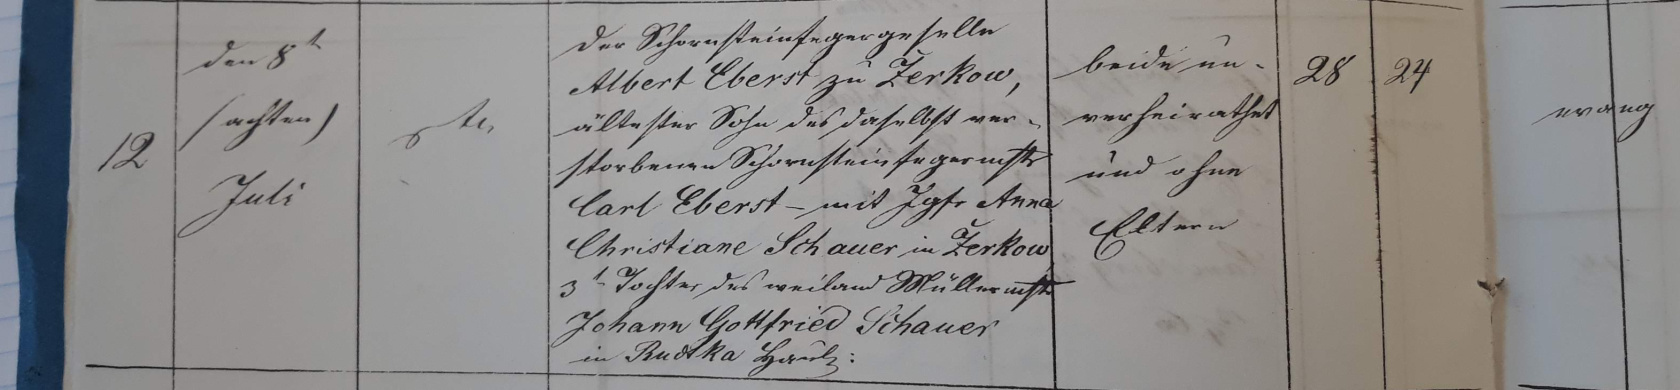 12
den 8t
(achten)
Juli
der Schornsteinfegergeselle
Albert Eberst zu Zerkow,
ältester Sohn des daselbst ver-
storbenen Schornsteinfegermstr
Carl Eberst - mit Jgfr Anna
Christiane Schauer in Zerkow
3t Tochter des weiland Müllermstr
Johann Gottfried Schauer
in Rudka Hauld:
beide un-
verheirathet
und ohne
Eltern
28
24
evang